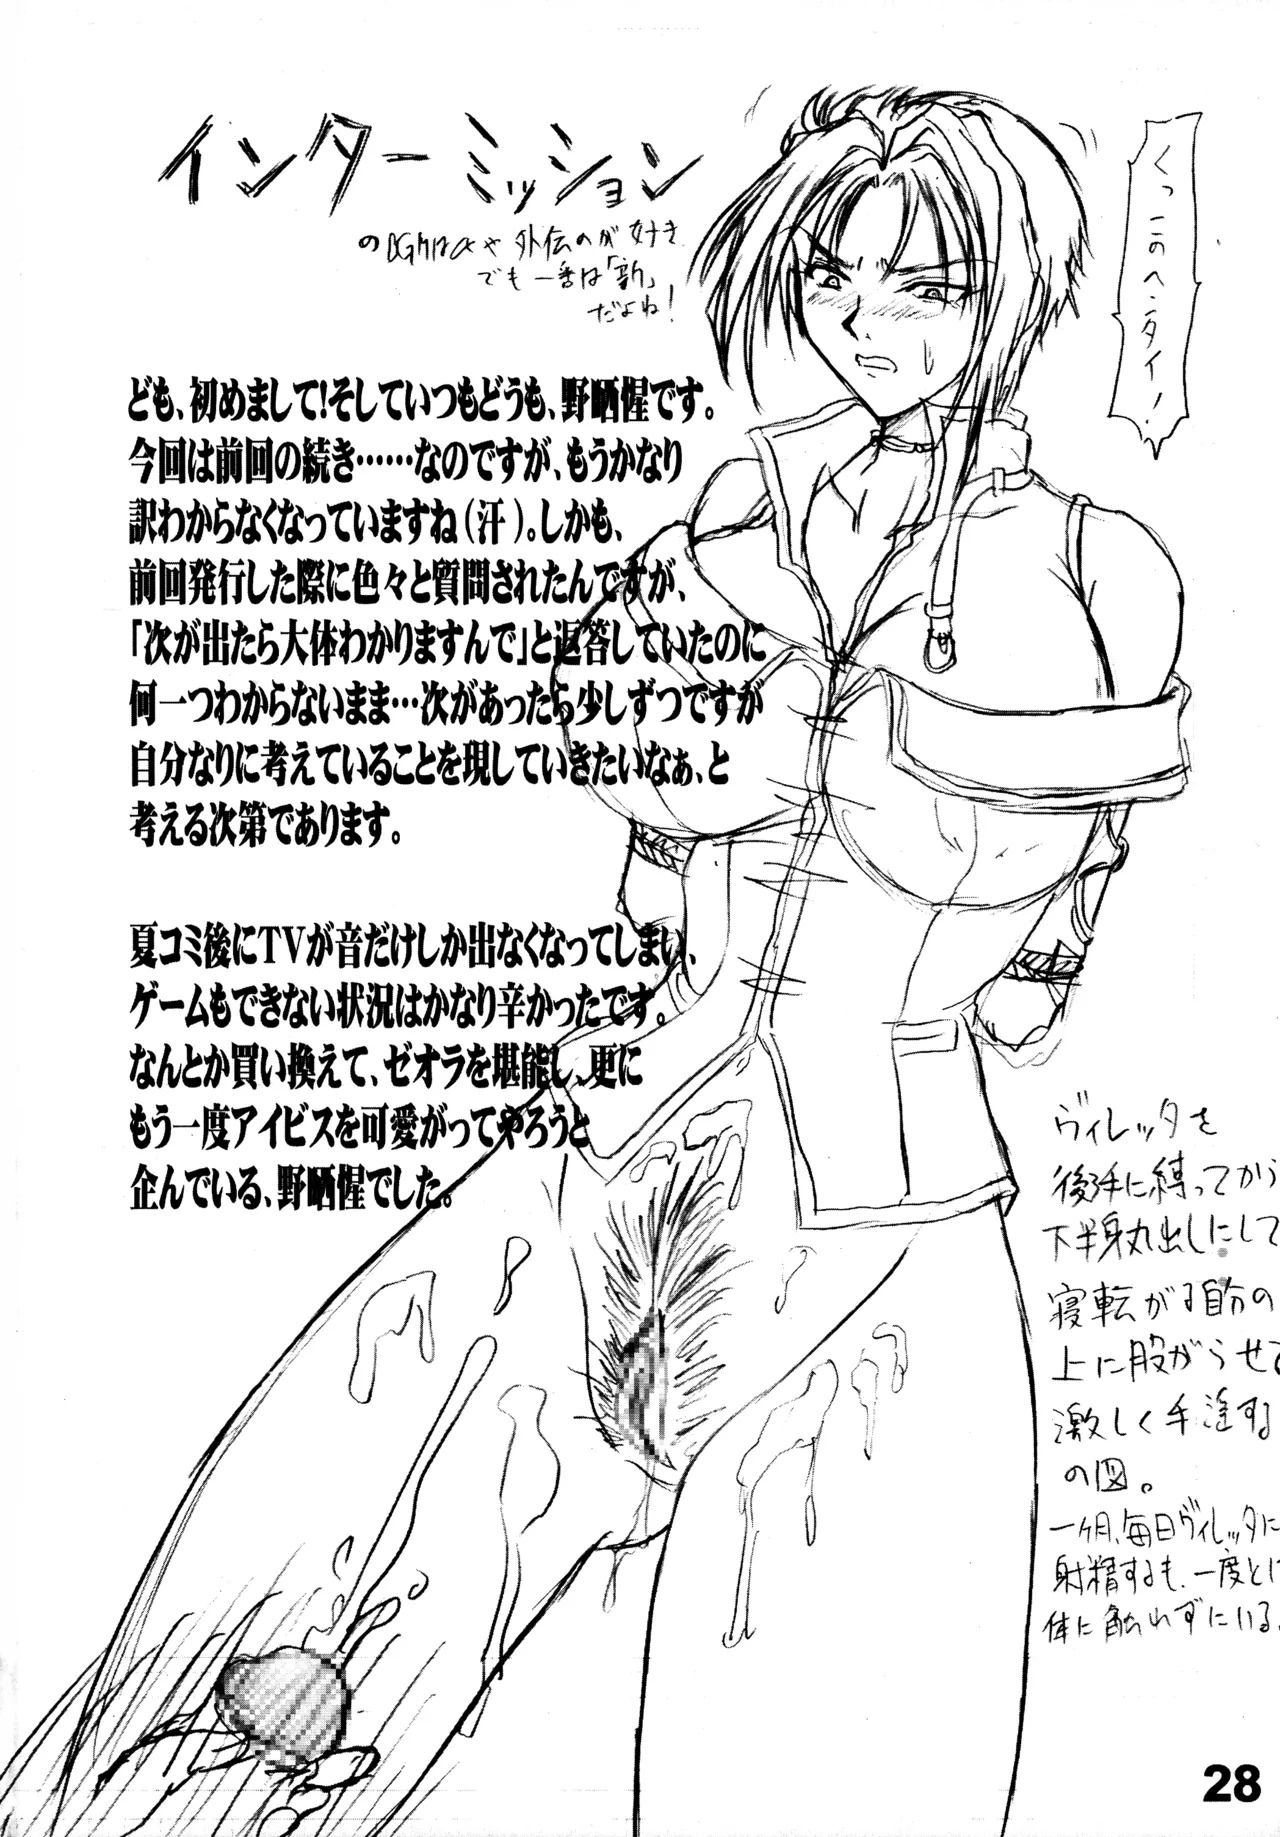 インターミッション
のBGMはαや外伝のが好き
でも一番は「新」
だよね!
くっこのヘンタイ!
ども、初めまして!そしていつもどうも、野晒惺です。
今回は前回の続き……なのですが、もうかなり
訳わからなくなっていますね(汗)。しかも、
前回発行した際に色々と質問されたんですが、
「次が出たら大体わかりますんで」と返答していたのに
何一つわからないまま…次があったら少しずつですが
自分なりに考えていることを現していきたいなぁ、と
考える次第であります。
夏コミ後にTVが音だけしか出なくなってしまい、
ゲームもできない状況はかなり辛かったです。
なんとか買い換えて、ゼオラを堪能し、更に
もう一度アイビスを可愛がってやろうと
企んでいる、野晒惺でした。
ヴィレッタを
後手に縛ってから
下半身丸出しにして
寝転がる自分の
上に股がらせて
激しく手淫する
の図。
一ヶ月、毎日ヴィレッタに
射精するも、一度とに
体に触れずにいる。
28